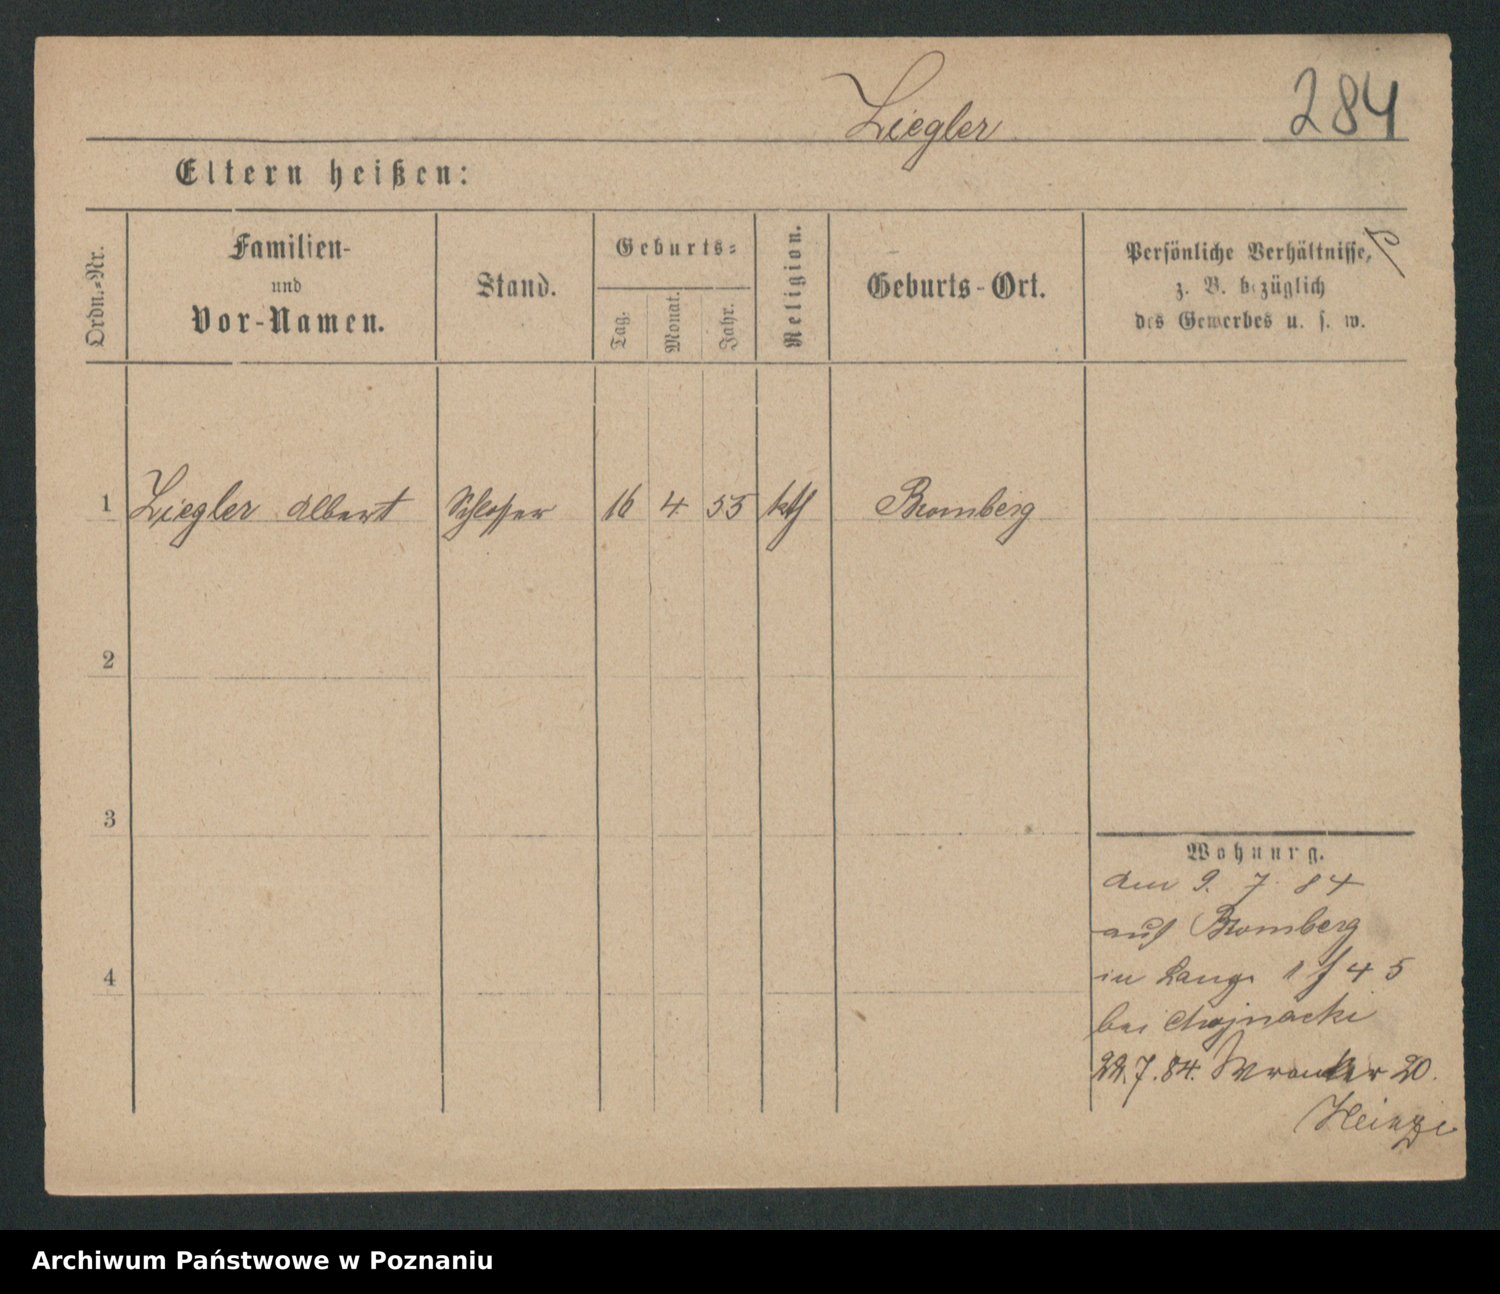 Ziegler 284
Eltern heißen:
Ordn.-Nr.
Familien-
und
Vor-Namen.
Stand.
Geburts-
Tag.
Monat.
Jahr.
Religion.
Geburts-Ort.
Persönliche Verhältnisse,
z. B. bezüglich
des Gewerbes u. s. w.
1 Ziegler Albert Schlosser 16 4 55 kth Bromberg
2
3
4
Wohnung.
den 9. 7. 84
aus Bromberg
in Lange
bei Chojnacki
22.7.84. Wronker 20.
Heinze
Archiwum Państwowe w Poznaniu